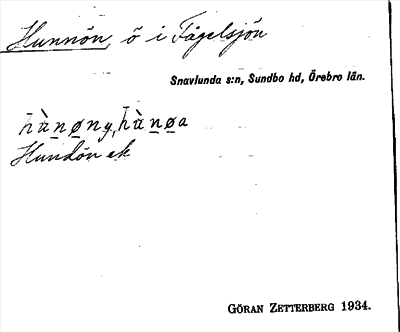 Hunnön, ö i Fågelsjön
Snavlunda s:n, Sundbo hd, Örebro län.
hù̀nøny, hù̀nøa
Hundön ek
GÖRAN ZETTERBERG 1934.